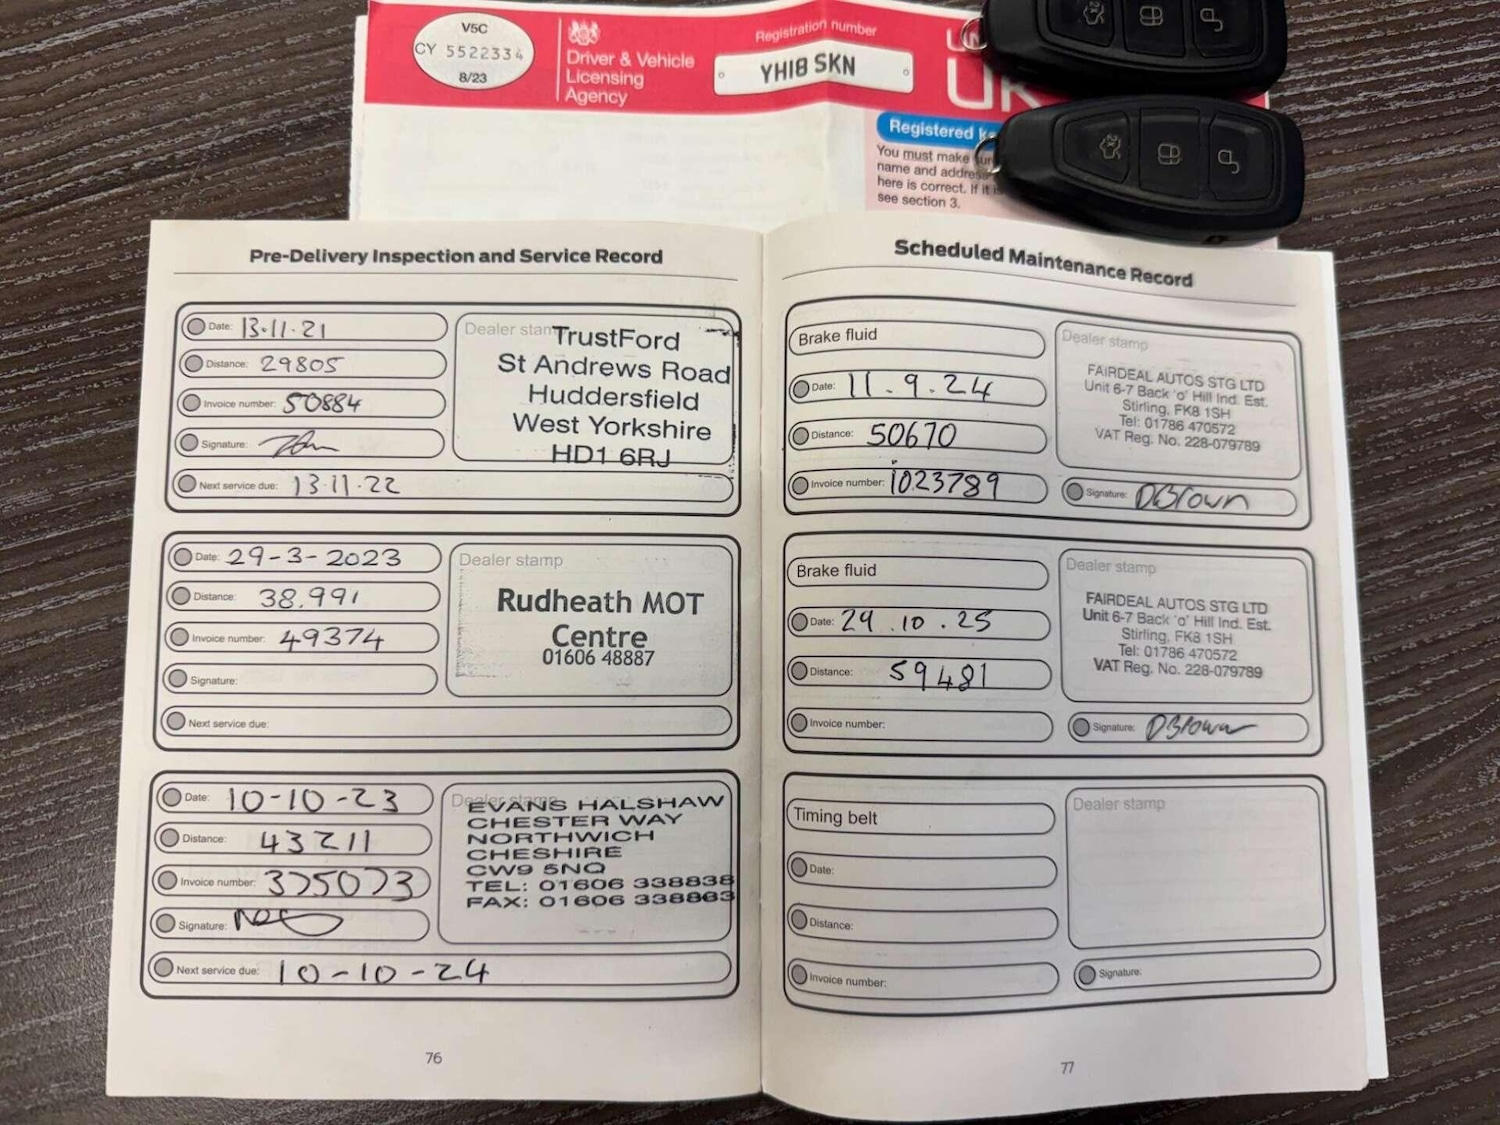 V5C
CY 5522334
8/23
Driver & Vehicle
Licensing
Agency
Registration number
YH18 SKN
UK
Registered
You must make
name and address
here is correct. If it is
see section 3.
Pre-Delivery Inspection and Service Record
Date: 13.11.21
Distance: 29805
Invoice number: 50884
Signature:
Next service due: 13.11.22
Dealer stamp
TrustFord
St Andrews Road
Huddersfield
West Yorkshire
HD1 6RJ
Date: 29-3-2023
Distance: 38.991
Invoice number: 49374
Signature:
Next service due:
Dealer stamp
Rudheath MOT
Centre
01606 48887
Date: 10-10-23
Distance: 43211
Invoice number: 375073
Signature:
Next service due: 10-10-24
Dealer stamp
EVANS HALSHAW
CHESTER WAY
NORTHWICH
CHESHIRE
CW9 5NQ
TEL: 01606 338838
FAX: 01606 338863
76
Scheduled Maintenance Record
Brake fluid
Date: 11.9.24
Distance: 50670
Invoice number: 1023789
Dealer stamp
FAIRDEAL AUTOS STG LTD
Unit 6-7 Back 'o' Hill Ind. Est.
Stirling, FK8 1SH
Tel: 01786 470572
VAT Reg. No. 228-079789
Signature: DBrown
Brake fluid
Date: 29.10.25
Distance: 59481
Invoice number:
Dealer stamp
FAIRDEAL AUTOS STG LTD
Unit 6-7 Back 'o' Hill Ind. Est.
Stirling, FK8 1SH
Tel: 01786 470572
VAT Reg. No. 228-079789
Signature: DBrown
Timing belt
Date:
Distance:
Invoice number:
Dealer stamp
Signature:
77